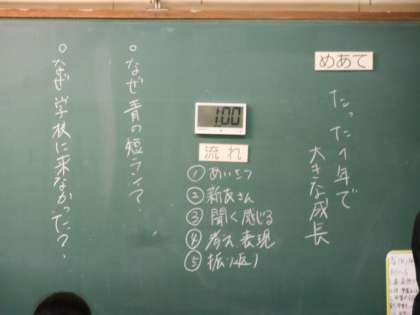 めあて
たった1年で
大きな成長
1:00
流れ
①あいさつ
②新友さん
③聞く感じる
④考え 表現
⑤振り返り
○なぜ青の短ラン?
○なぜ学校に来なかった?